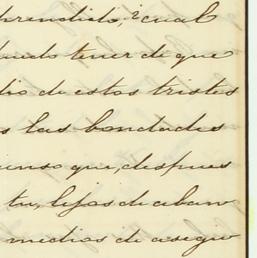 brendido, ¿cual
tener de que
dio de estos tristes
s las bondades
enso que, despues
tu, lejos de aban
medios de asegu